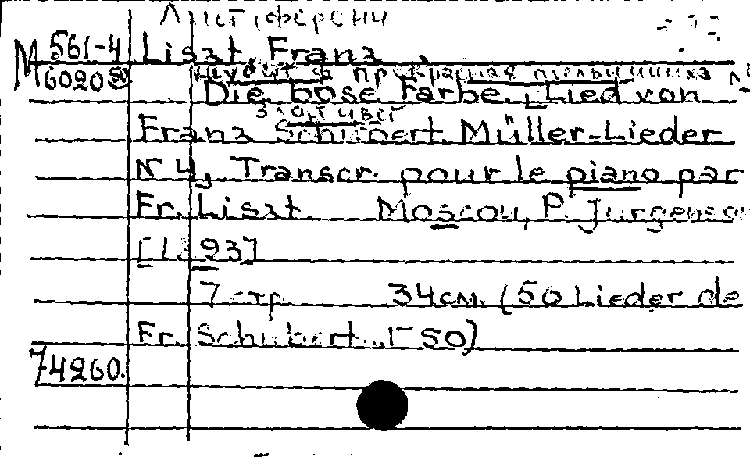 Лист Ференц
M 561-4 Liszt, Franz
6020 50 прекрасная мельничиха №
Die böse Farbe. Lied von
злой цвет
Franz Schubert. Müller-Lieder
N 4, Transcr. pour le piano par
Fr. Liszt. Moscou, P. Jurgenson
[1893]
7 стр. 34 см. (50 Lieder de
Fr. Schubert. 50)
74260.